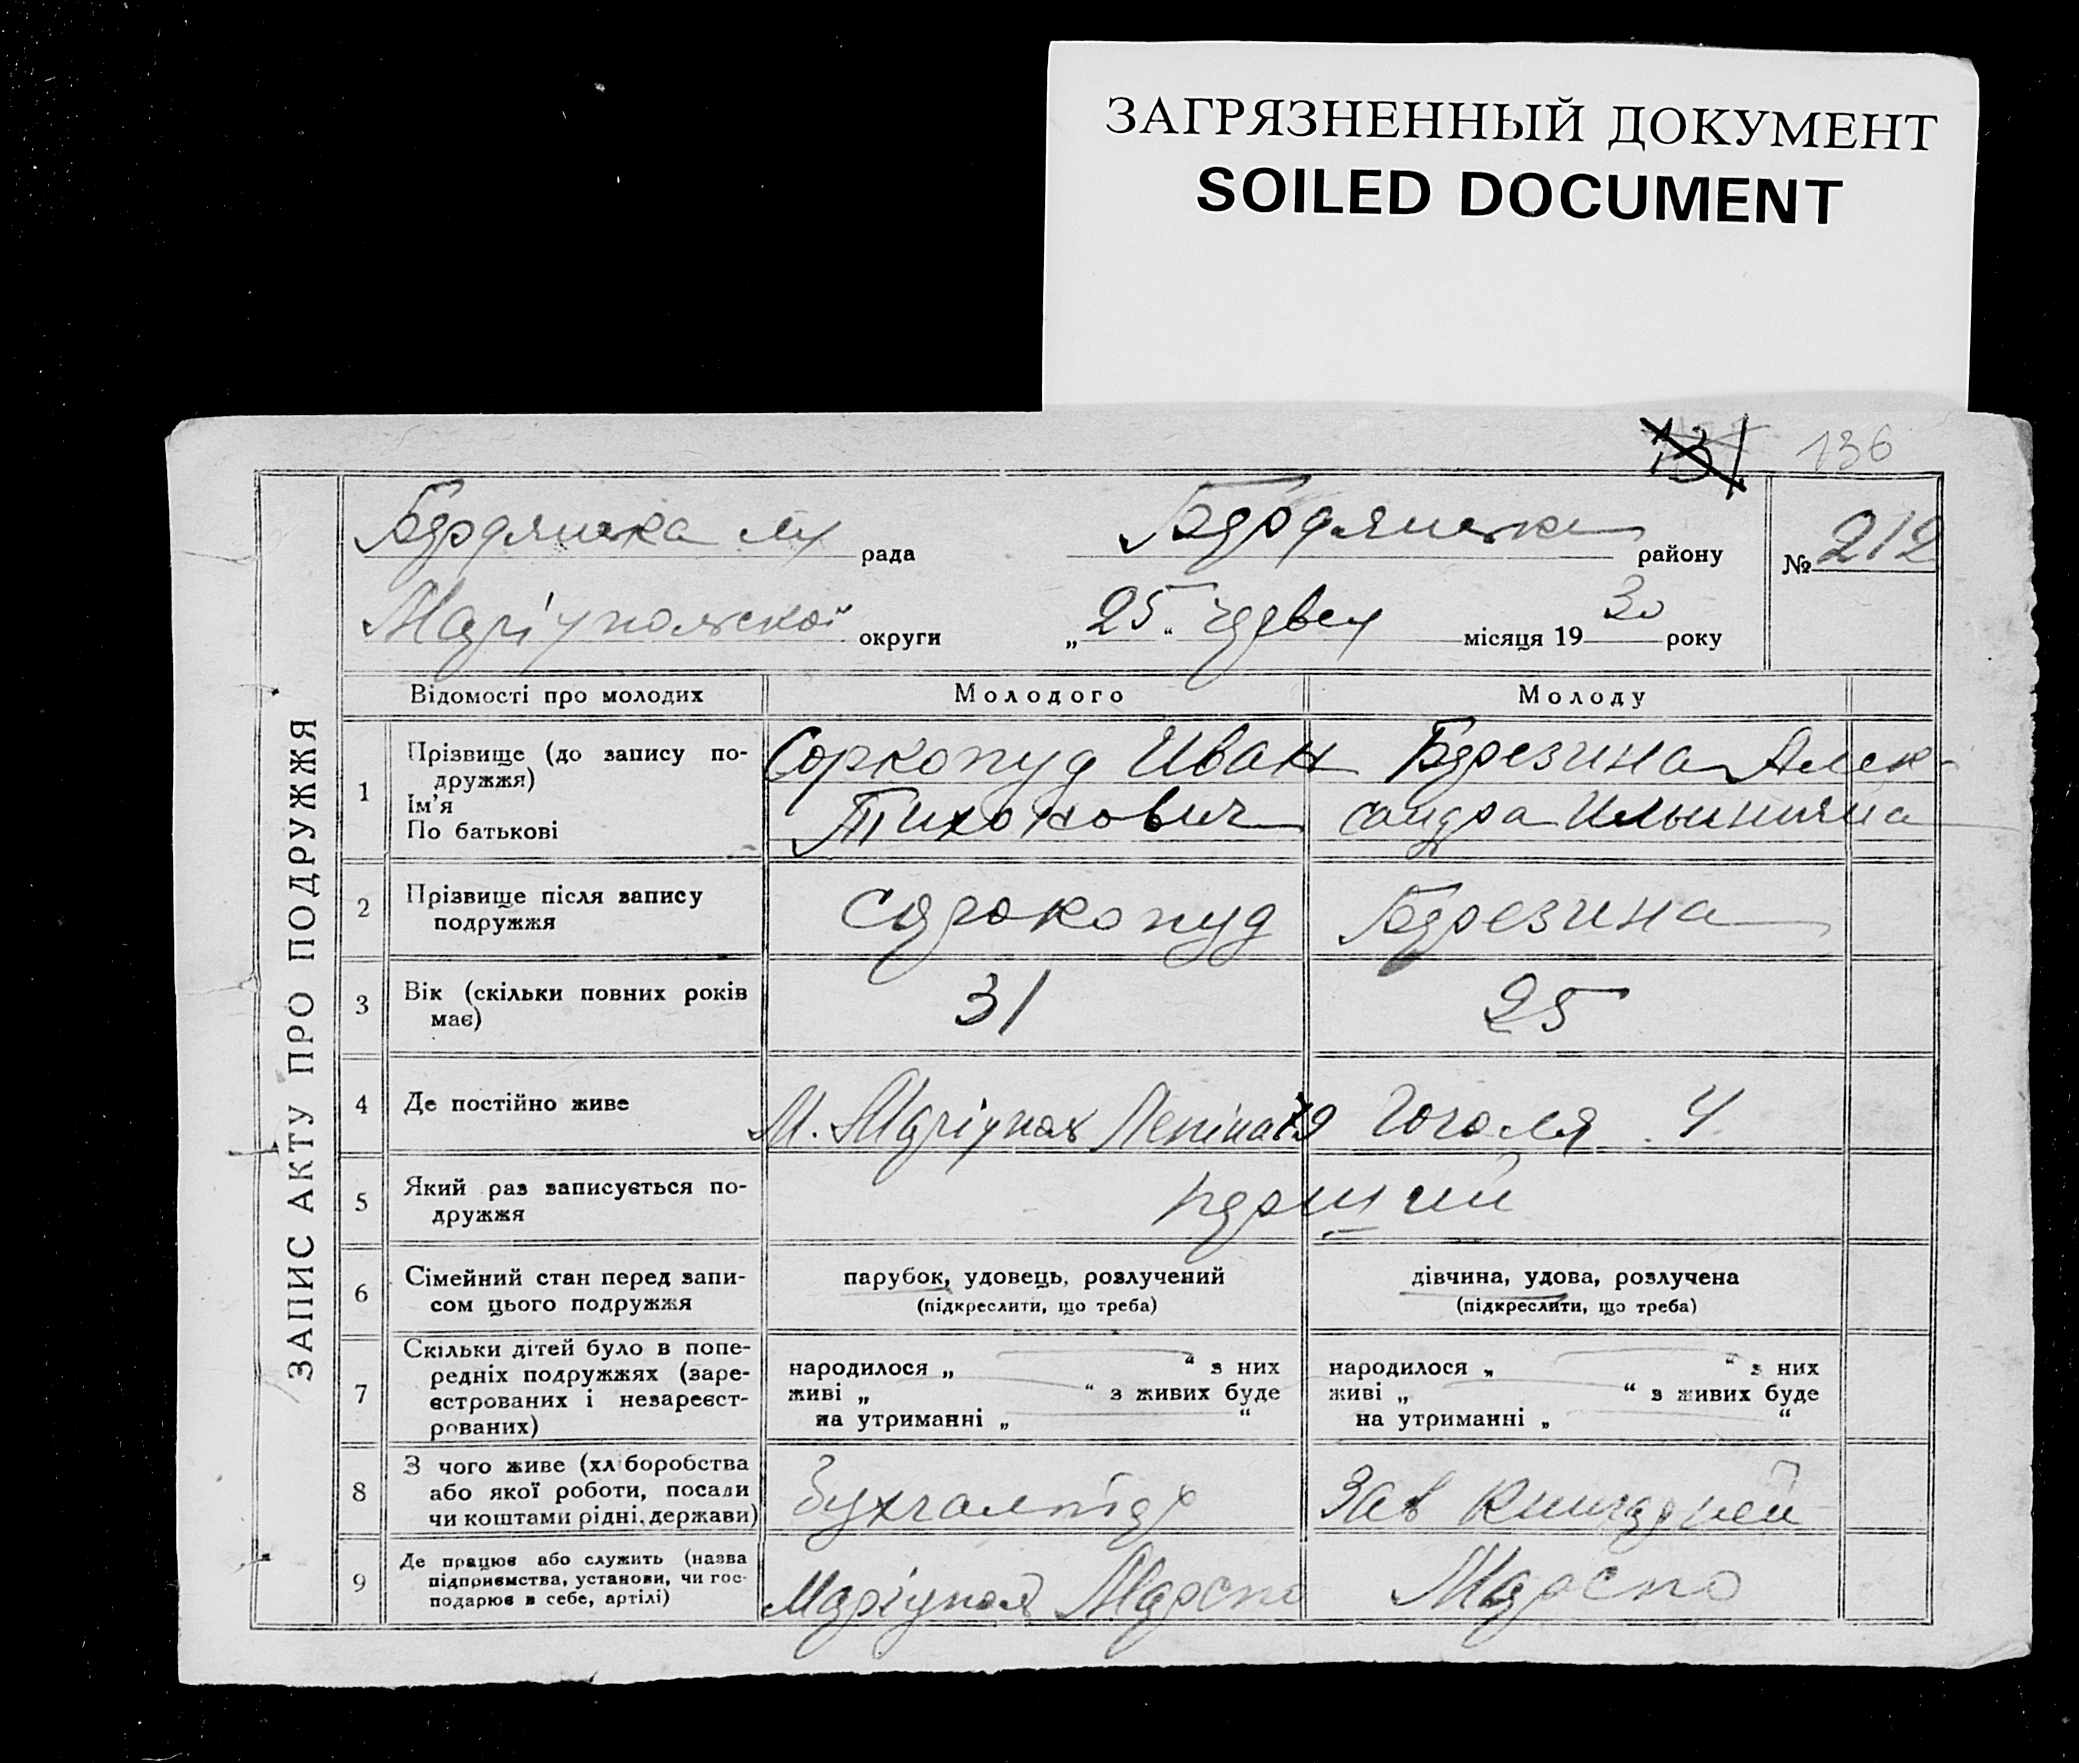 ЗАГРЯЗНЕННЫЙ ДОКУМЕНТ
SOILED DOCUMENT
131 136
ЗАПИС АКТУ ПРО ПОДРУЖЖЯ
Бердянська рада Бердянськ району № 212
Маріупольскої округи „25“ червен місяця 1930 року
Відомості про молодих Молодого Молоду
1 Прізвище (до запису по-
дружжя)
Ім'я
По батькові
Соркопуд Иван Березина Алек-
Тихонович сандра Ильинична
2 Прізвище після запису
подружжя
Сорокопуд Березина
3 Вік (скільки повних років
має)
31 25
4 Де постійно живе М. Маріуполь Леніна 79 Гоголя 4
5 Який раз записується по-
дружжя
перший
6 Сімейний стан перед запи-
сом цього подружжя
парубок, удовець, розлучений дівчина, удова, розлучена
(підкреслити, що треба) (підкреслити, що треба)
7 Скільки дітей було в попе-
редніх подружжях (заре-
єстрованих і незареєст-
рованих)
народилося „ “ з них народилося „ “ з них
живі „ “ з живих буде живі „ “ з живих буде
на утриманні „ “ на утриманні „ “
8 З чого живе (хліборобства
або якої роботи, посади
чи коштами рідні, держави)
Бухгалтер Зав
9 Де працює або служить (назва
підприємства, установи, чи гос-
подарює в себе, артілі)
Маріуполь